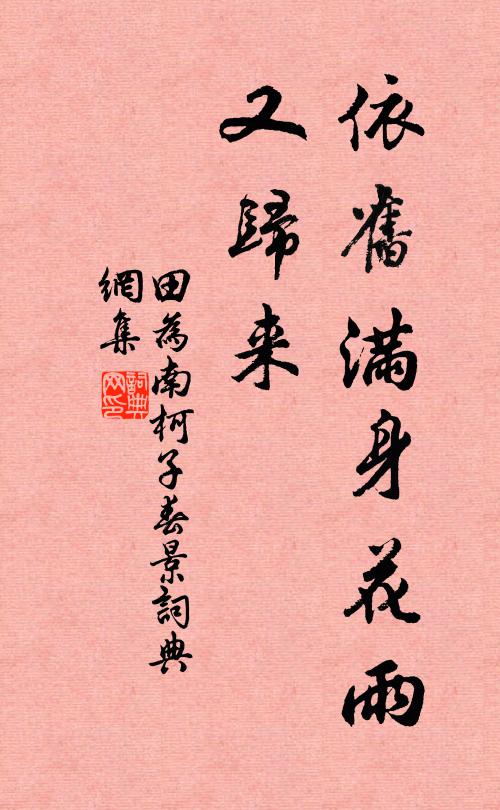 依舊满身花雨
又歸来
田為南柯子春景詞典
網集
詞典
网印